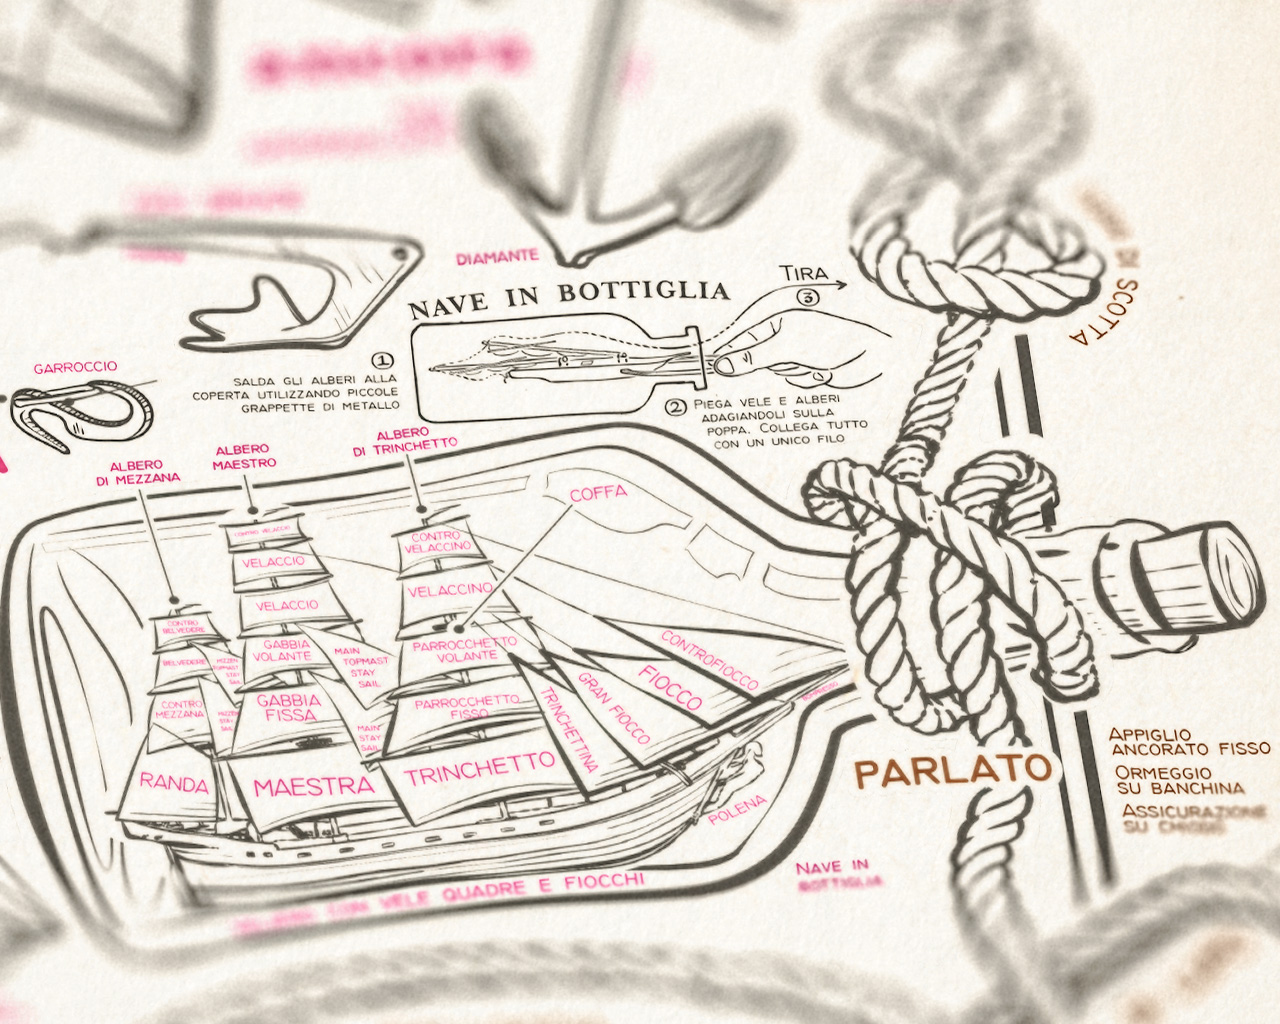 DIAMANTE
NAVE IN BOTTIGLIA
TIRA
3
DI SCOTTA
GARROCCIO
1
SALDA GLI ALBERI ALLA
COPERTA UTILIZZANDO PICCOLE
GRAPPETTE DI METALLO
2 PIEGA VELE E ALBERI
ADAGIANDOLI SULLA
POPPA. COLLEGA TUTTO
CON UN UNICO FILO
ALBERO
DI MEZZANA
ALBERO
MAESTRO
ALBERO
DI TRINCHETTO
COFFA
CONTRO
BELVEDERE
BELVEDERE
CONTRO
MEZZANA
RANDA
MIZZEN
TOPMAST
STAY
SAIL
MIZZEN
STAY
SAIL
CONTRO VELACCIO
VELACCIO
VELACCIO
GABBIA
VOLANTE
GABBIA
FISSA
MAESTRA
MAIN
TOPMAST
STAY
SAIL
MAIN
STAY
SAIL
CONTRO
VELACCINO
VELACCINO
PARROCCHETTO
VOLANTE
PARROCCHETTO
FISSO
TRINCHETTO
TRINCHETTINA
GRAN FIOCCO
FIOCCO
CONTROFIOCCO
BOMPRESSO
POLENA
VELIERO CON VELE QUADRE E FIOCCHI
NAVE IN
BOTTIGLIA
PARLATO
APPIGLIO
ANCORATO FISSO
ORMEGGIO
SU BANCHINA
ASSICURAZIONE
SU